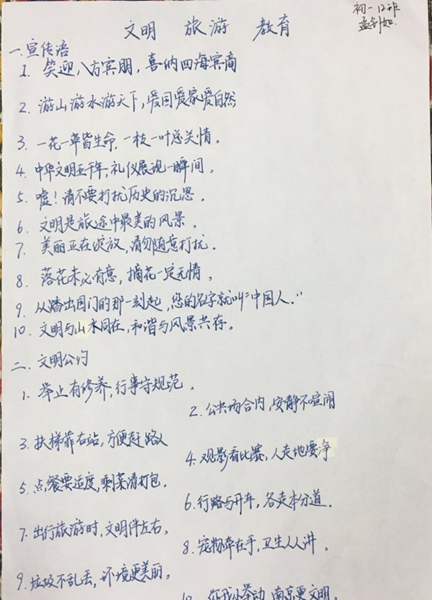 初一12班
文明 旅游 教育
一.宣传语
1. 笑迎八方宾朋,喜纳四海宾商
2. 游山游水游天下,爱国爱家爱自然
3. 一花一草皆生命,一枝一叶总关情。
4. 中华文明五千年,礼仪展现一瞬间。
5. 嘘!请不要打扰历史的沉思。
6. 文明是旅途中最美的风景。
7. 美丽正在绽放,请勿随意打扰。
8. 落花未必有意,摘花一定无情。
9. 从踏出国门的那一刻起,您的名字就叫“中国人。”
10. 文明与山水同在,和谐与风景共存。
二、文明公约
1. 举止有修养,行事守规范。
2. 公共场合内,安静不喧闹
3. 扶梯靠右站,方便赶路人
4. 观影看比赛,人走地要净
5. 点餐要适度,剩菜请打包。
6. 行路与开车,各走本分道。
7. 出行旅游时,文明伴左右。
8. 宠物牵在手,卫生人人讲。
9. 垃圾不乱丢,环境更美丽。
小举动,南京更文明。